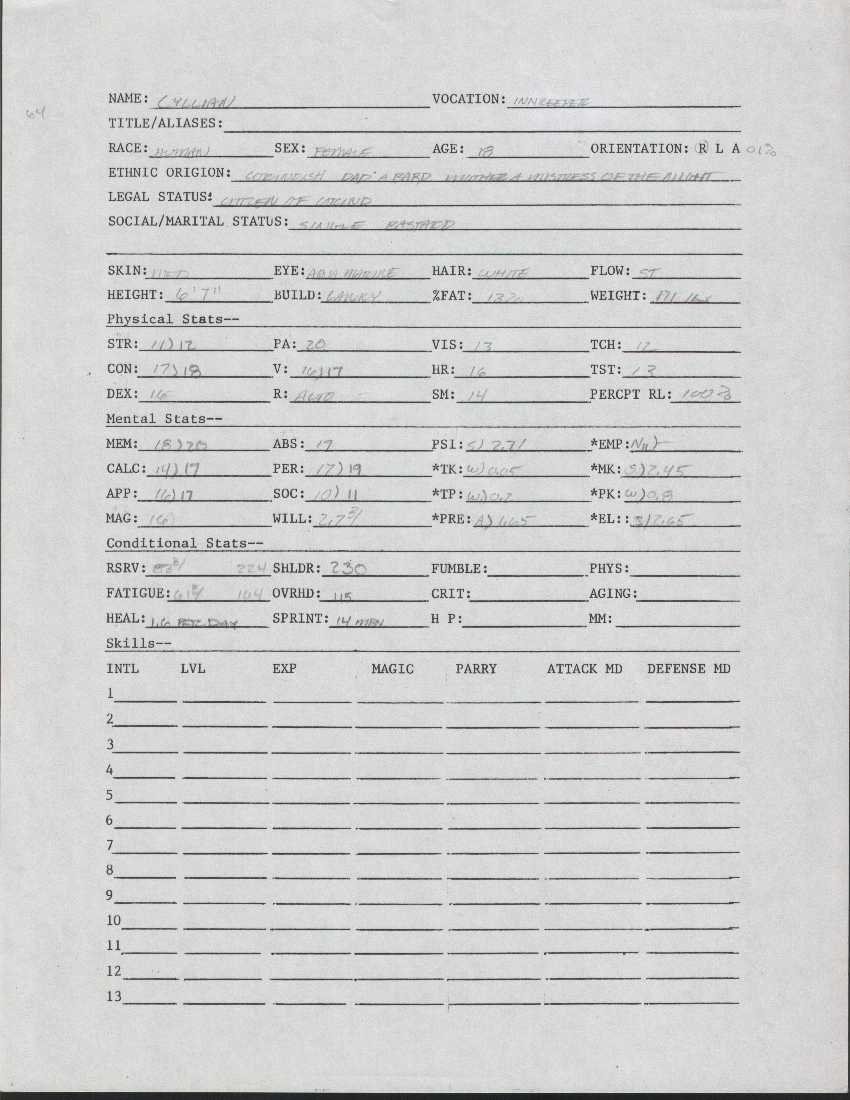 64
NAME: LYLLIAN VOCATION: INNKEEPER
TITLE/ALIASES:
RACE: HUMAN SEX: FEMALE AGE: 18 ORIENTATION: R L A 01%
ETHNIC ORIGION: CORINDISH DAD A BARD MOTHER A MISTRESS OF THE NIGHT
LEGAL STATUS: CITIZEN OF
SOCIAL/MARITAL STATUS: SINGLE BASTARD
SKIN: MED EYE: AQUA MARINE HAIR: WHITE FLOW: ST
HEIGHT: 6'7" BUILD: LANKY %FAT: 13% WEIGHT: 171 lbs
Physical Stats--
STR: 11)12 PA: 20 VIS: 13 TCH: 12
CON: 17)18 V: 16)17 HR: 16 TST: 13
DEX: 16 R: AUTO SM: 14 PERCPT RL: 100%
Mental Stats--
MEM: 18)20 ABS: 17 PSI: S) 2.71 *EMP:
CALC: 14)17 PER: 17)19 *TK: W)0.05 *MK: S)2.45
APP: 16)17 SOC: 10) 11 *TP: W)0.2 *PK: W)0.8
MAG: 16 WILL: *PRE: A)1.65 *EL:: S)2.65
Conditional Stats--
RSRV: 224 SHLDR: 230 FUMBLE: PHYS:
FATIGUE: 104 OVRHD: 115 CRIT: AGING:
HEAL: 1.6 PER DAY SPRINT: 14 MEN H P: MM:
Skills--
INTL LVL EXP MAGIC PARRY ATTACK MD DEFENSE MD
1
2
3
4
5
6
7
8
9
10
11
12
13